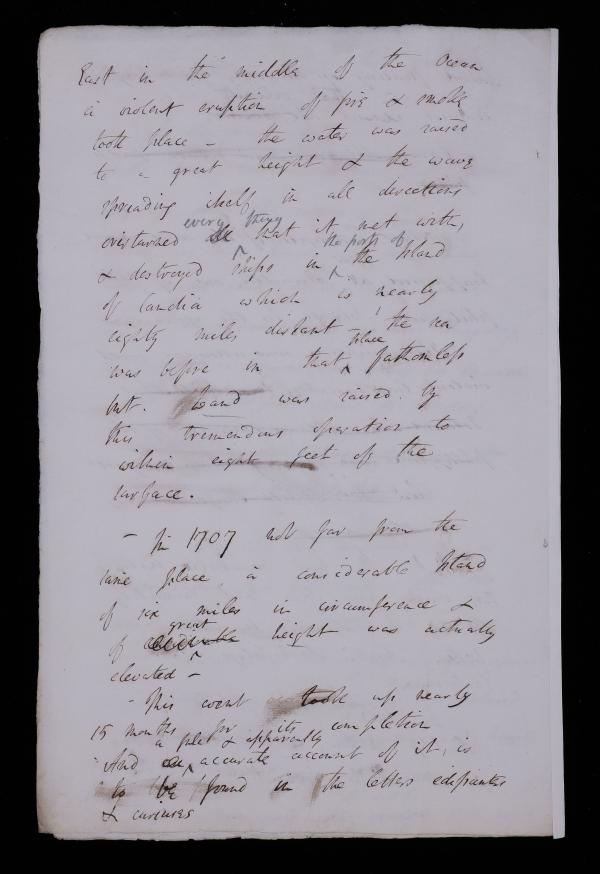 East in the middle of the Ocean
a violent eruption of fire & smoke
took place - the water was raised
to a great height & the wave
spreading itself in all directions
every thing
overturned all that it met with,
the ports of
& destroyed ships in the Island
of Candia which is nearly
eighty miles distant, the sea
place
was before in that fathomless
but. Land was raised by
this tremendous operation to
within eight feet of the
surface.
- In 1707 not far from the
same place, a considerable Island
of six miles in circumference &
great
of height was actually
elevated -
- This event took up nearly
15 months for its completion
a full & apparently
And an accurate account of it, is
to be found in the letters edifiantes
& curieuses